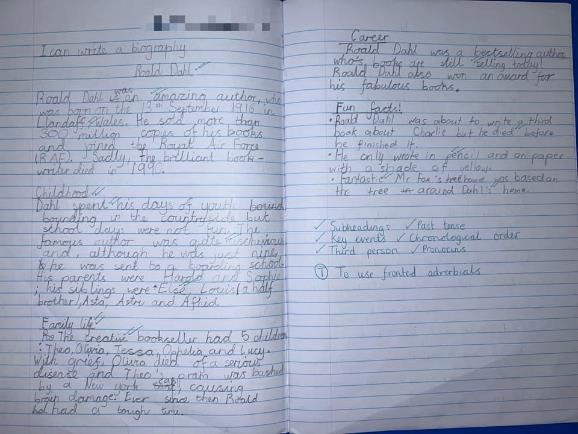 I can write a biography
Roald Dahl
Roald Dahl was an amazing author, who
was born on the 13th September 1916 in
Llandaff, Wales. He sold more than
300 million copies of his books
and joined the Royal Air Force
(RAF). Sadly, the brilliant book-
writer died in 1990.
Childhood
Dahl spent his days of youth bound
bounding, in the countryside but
school days were not fun. The
famous author was quite mischievous
and, although he was just nine,
he was sent to a boarding school.
His parents were Harald and Sophie
; his siblings were: Else, Louis (a half
brother), Asta, Astri and Alfhid
Family life
The creative bookseller had 5 children
: Theo, Olivia, Tessa, Ophelia and Lucy.
With grief, Olivia died of a serious
disease and Theo's pram was bashed
by a New York cab, causing
brain damage. Ever since then Roald
had a tough time.
Career
Roald Dahl was a bestselling author
who's books are still selling today!
Roald Dahl also won an award for
his fabulous books.
Fun facts!
• Roald Dahl was about to write a third
book about Charlie but he died before
he finished it.
• He only wrote in pencil and on paper
with a shade of yellow.
• Fantastic Mr Fox's treehouse was based on
the tree around Dahl's home.
✓ Subheadings ✓ Past tense
✓ Key events ✓ Chronological order
✓ Third person ✓ Pronouns
T To use fronted adverbials